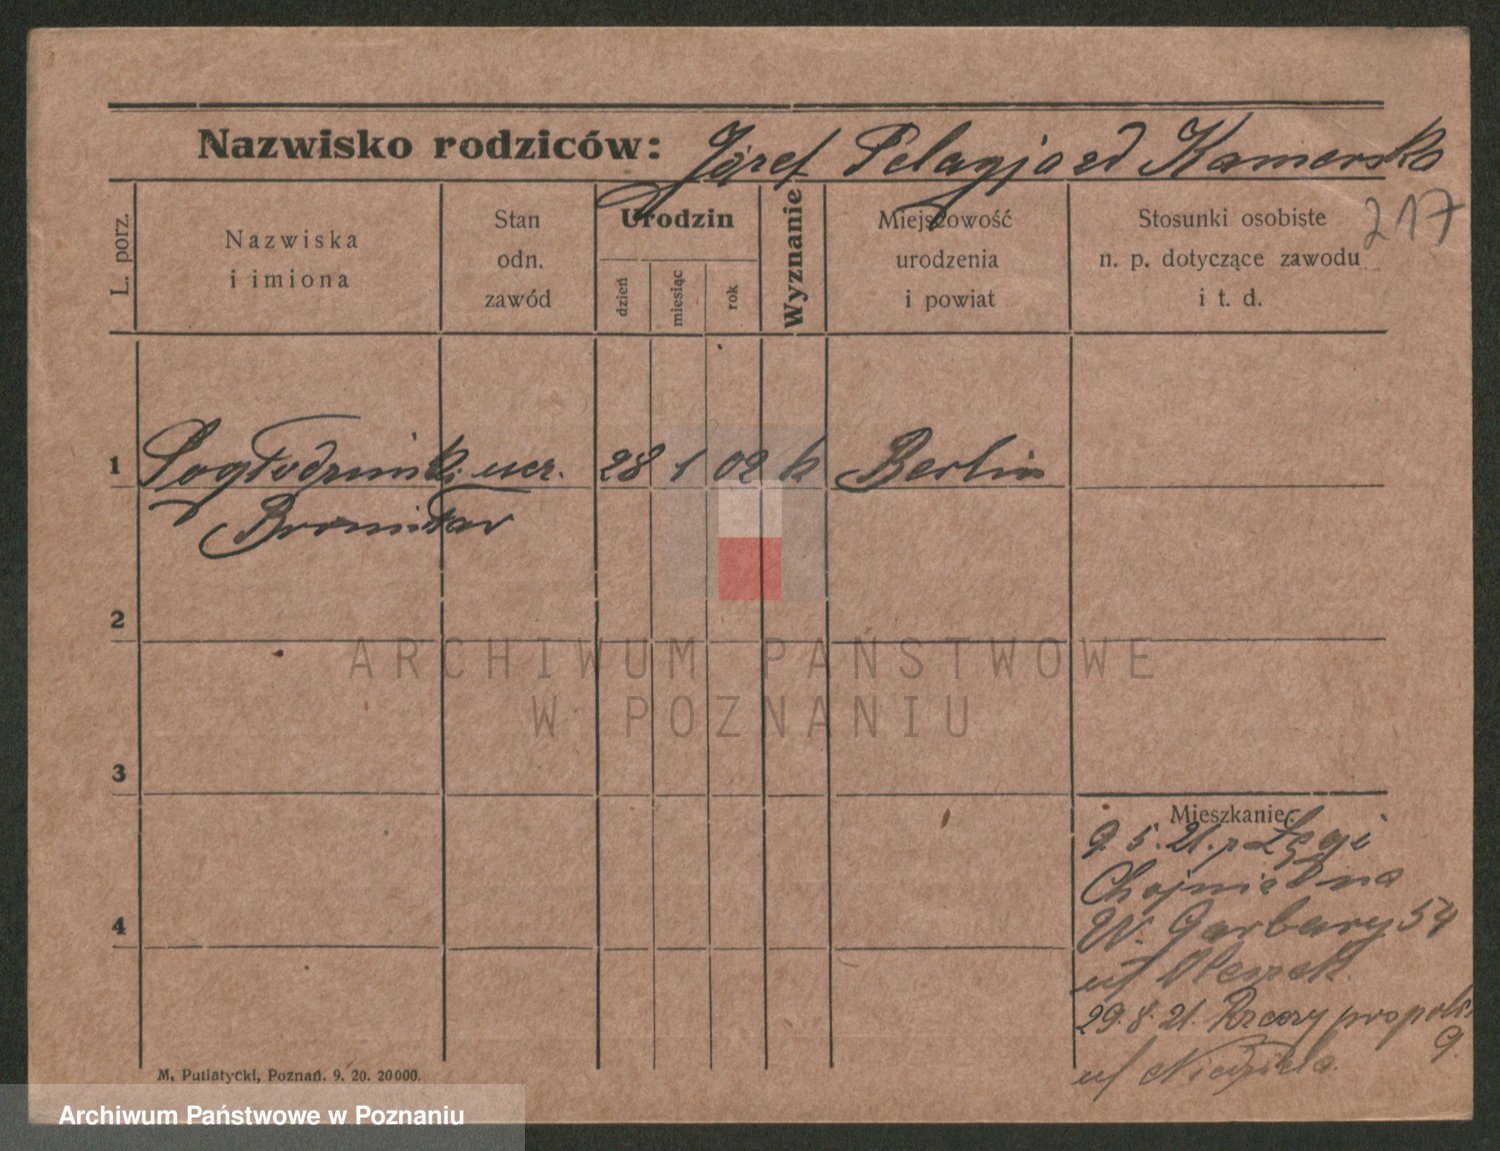 Nazwisko rodziców: Józef Pelagja zd Kamerska
217
L. porz.
Nazwiska
i imiona
Stan
odn.
zawód
Urodzin
dzień
miesiąc
rok
Wyznanie
Miejscowość
urodzenia
i powiat
Stosunki osobiste
n. p. dotyczące zawodu
i t. d.
1 Pogłodziński ucz. 28 1 02 k Berlin
Bronisław
2
3
4
Mieszkanie:
9 5. 21. p
W. Garbary 54
u/
29. 8. 21. Rzeczypospolit.
9.
u/ Niedziela
M. Putiatycki, Poznań. 9. 20. 20000.
ARCHIWUM PAŃSTWOWE
W POZNANIU
Archiwum Państwowe w Poznaniu